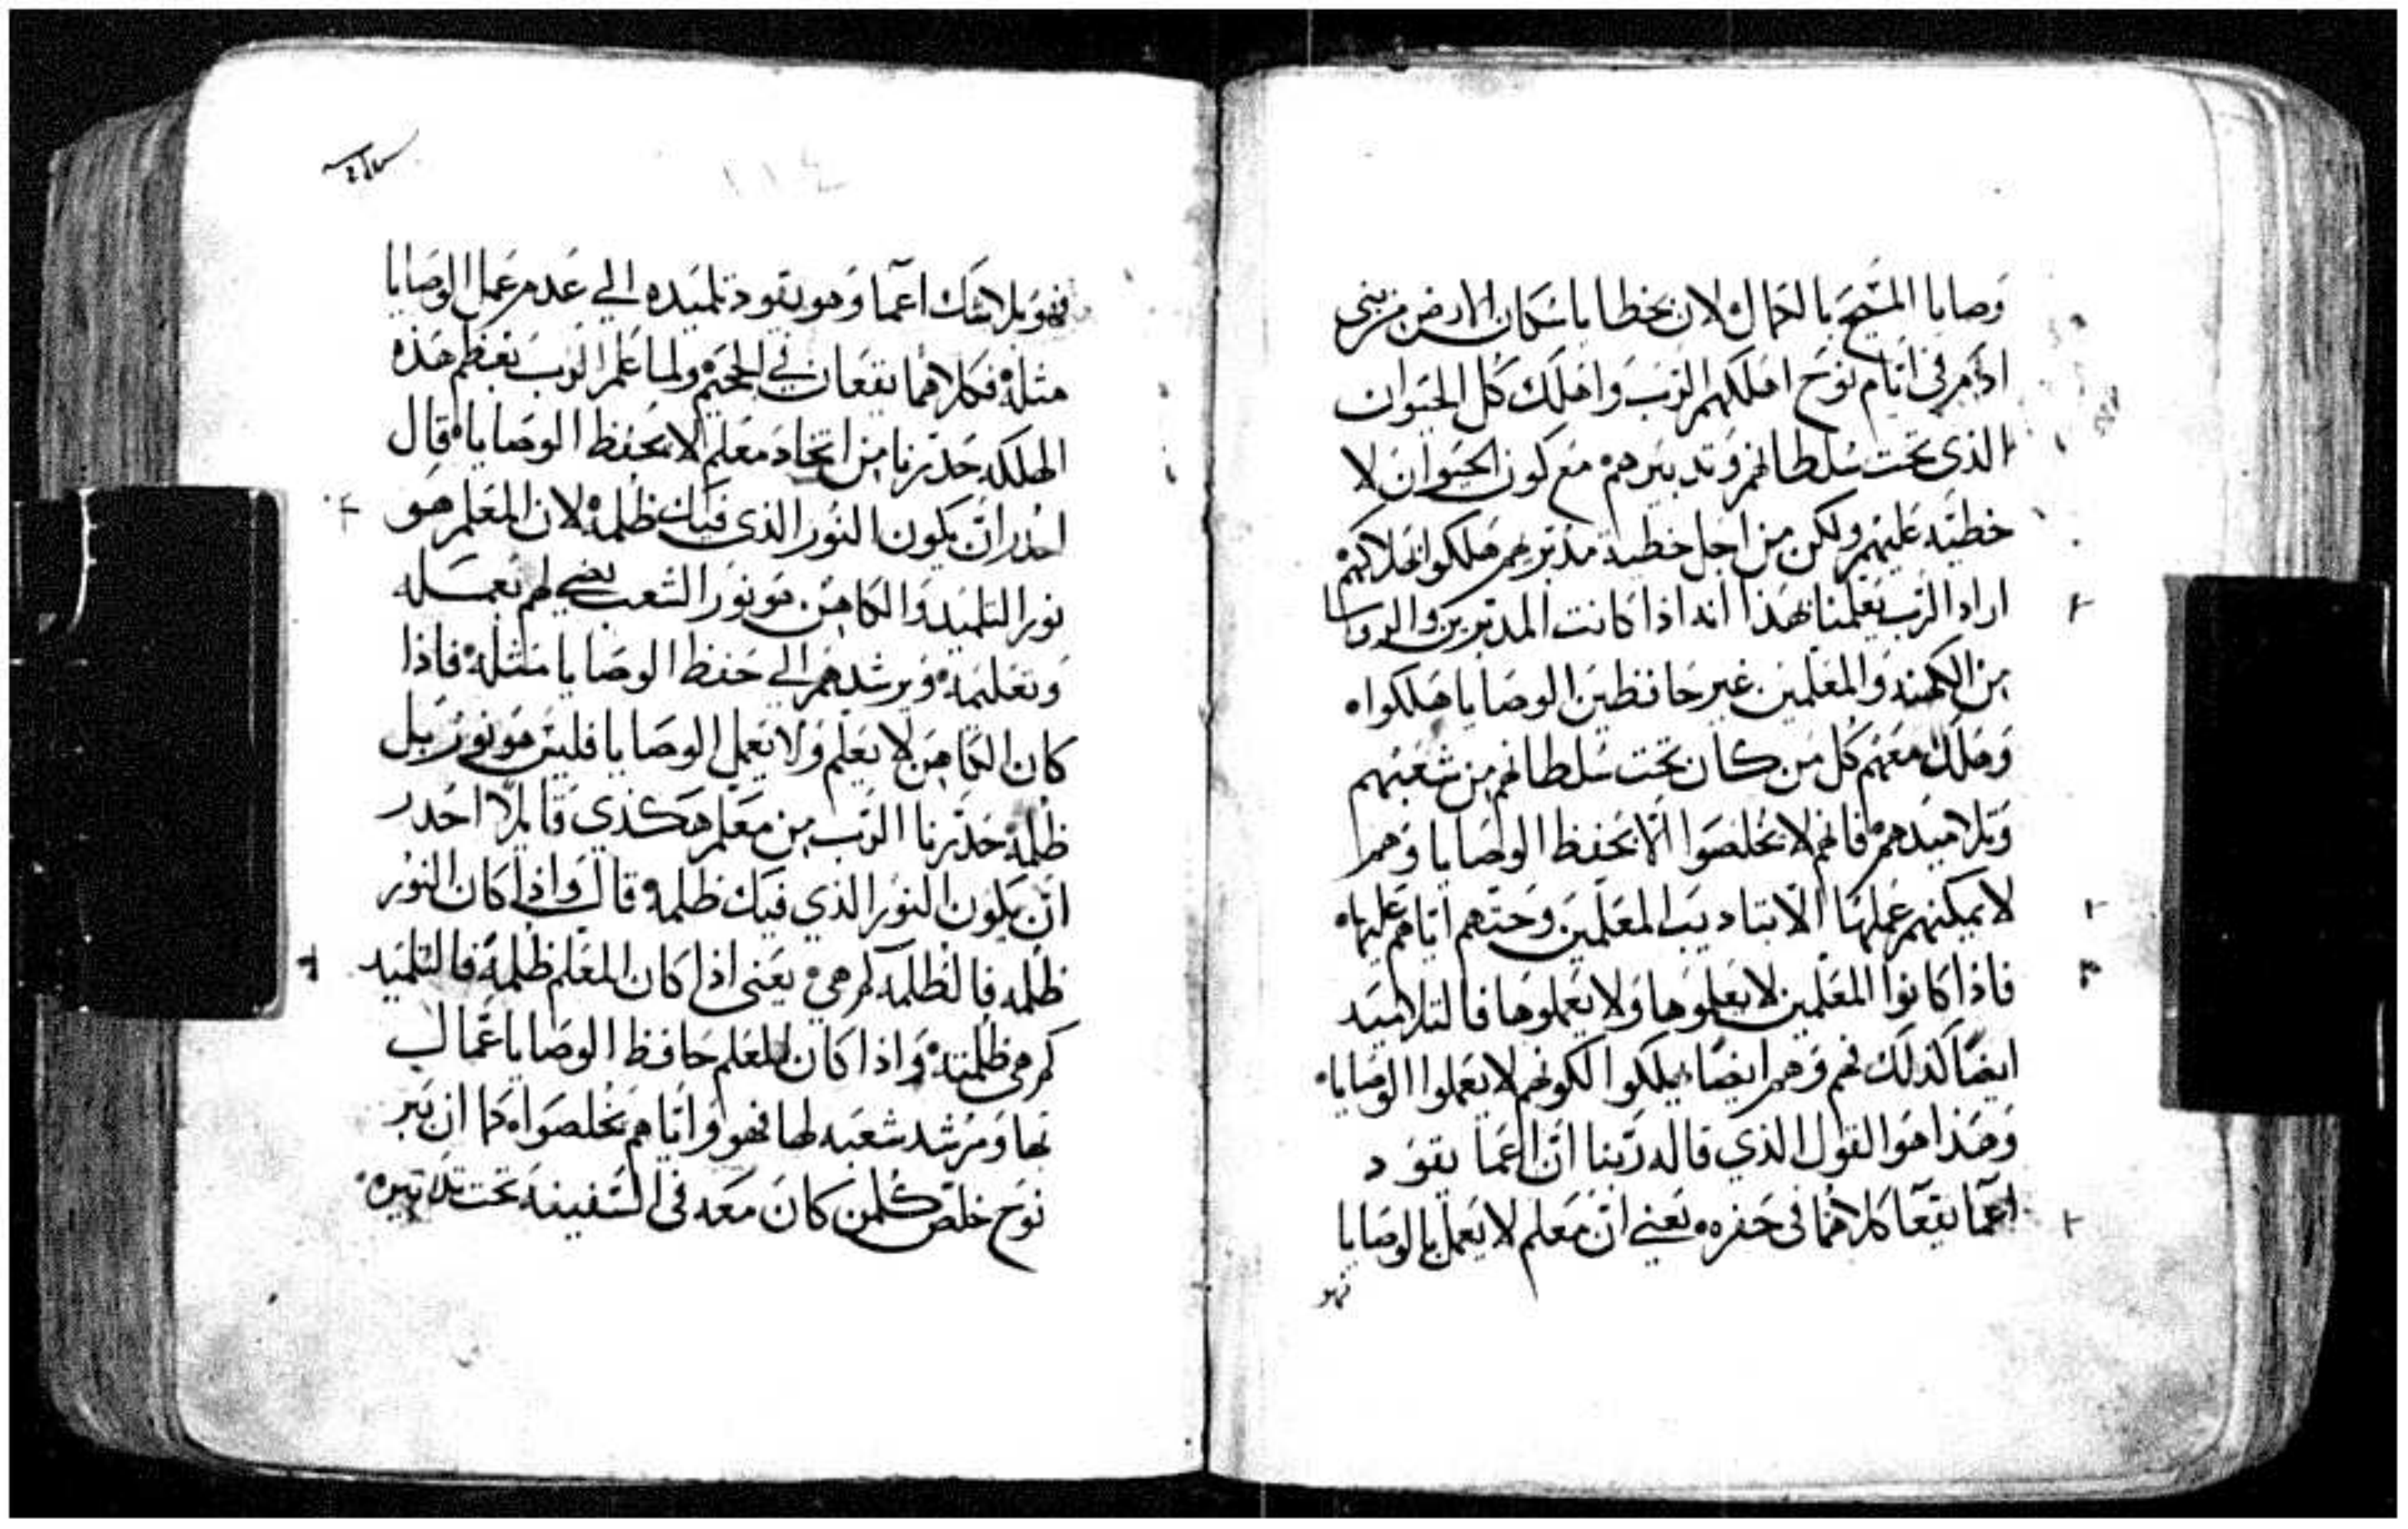 وصايا المسيح بالكمال لان بخطايا سكان الارض من بني
ادم في ايام نوح اهلكهم الرب واهلك كل الحيوان
الذي تحت سلطانهم وتدبيرهم مع كون الحيوان لا
خطيه عليهم ولكن من اجل خطية مدبرهم هلكوا
اراد الرب يعلمنا بهذا انه اذا كانت المدبرين والروسا
من الكهنه والمعلمين غير حافظين الوصايا هلكوا
وهلك معهم كل من كان تحت سلطانهم من شعبهم
وتلاميدهم فانهم لا يخلصوا الا بحفظ الوصايا وهم
لا يمكنهم عملها الا بتاديب المعلمين وحتهم اياهم عليها
فاذا كانوا المعلمين لا يعلموها ولا يعملوها فالتلاميد
ايضا كذلك هم وهم ايضا يهلكوا لكونهم لا يعملوا الوصايا
وهذا هو القول الذي قاله ربنا ان اعما يقود
اعما يقعا كلاهما في حفره يعني ان معلم لا يعمل بالوصايا
فهو
١١٤
فهو بلا شك اعما وهو يقود تلميده الي عدم عمل الوصايا
مثله فكلاهما يقعان في الجحيم ولما علم الرب بعظم هذه
الهلكه حدرنا من اتخاد معلم لا يحفظ الوصايا قال
احدر ان يكون النور الذي فيك ظلمه لان المعلم هو
نور التلميد والكاهن هو نور الشعب يضي لهم بعمله
وتعليمه ويرشدهم الي حفظ الوصايا مثله فاذا
كان الكاهن لا يعلم ولا يعمل الوصايا فليس هو نور بل
ظلمه حدرنا الرب من معلم هكذي قايلا احدر
ان يكون النور الذي فيك ظلمه قال واذا كان النور
ظلمه فالظلمه كم هي يعني اذا كان المعلم ظلمه فالتلميد
كم هي ظلمته واذا كان المعلم حافظ الوصايا عمال
بها ومرشد شعبه لها فهو واياهم يخلصوا كما ان ببر
نوح خلص كلمن كان معه في السفينه تحت تدبيره